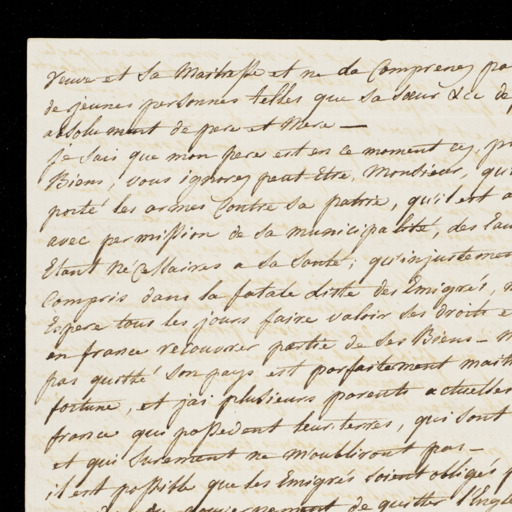 veuve et Sa Maitresse et ne la Comprenez pa
de jeunes personnes telles que sa sœur &c de
absolument de pere et Mere —
je sais que mon pere est en ce moment cy, pr
Biens, vous ignorez peut Etre, Monsieur, qu'i
porté les armes Contre Sa patrie, qu'il est a
avec permission de sa municipalité, des Eau
Etant Nécessaires a Sa Santé; qu'injustemen
Compris dans la fatale Liste des Emigrés,
Espere tous les jours faire valoir ses droits e
en france recouvrer partie de ses Biens — M
pas quitté son pays est parfaitement mait
fortune, et j'ai plusieurs parents actuelle
france qui possedent leurs terres, qui sont
et qui Surement ne m'oubliront pas —
il est possible que les Emigrés soient obligés
du gouvernement de quitter l'Engle